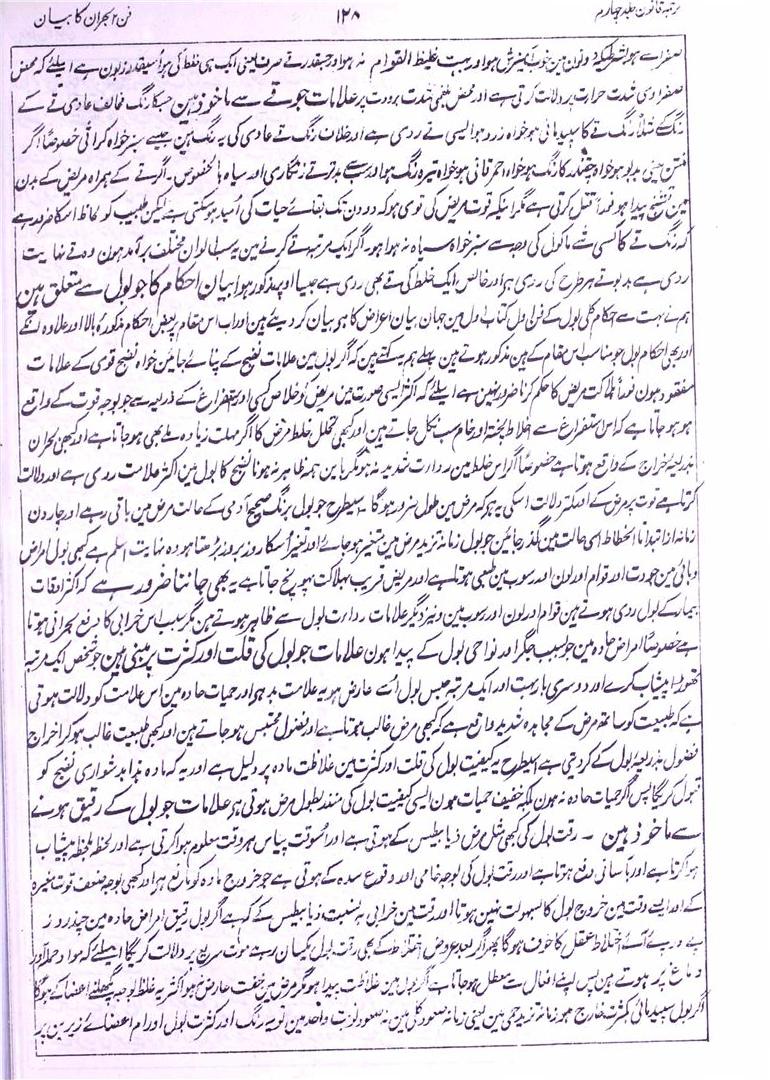 ترجمہ قانون جلد چہارم ۱۲۸ فن ۲ بحران کا بیان
صفرا سے ہو بشرطیکہ دونون مین خوب آمیزش ہو اور بہت غلیظ القوام نہ ہو اور جسقدر قے صرف یعنی ایک ہی خلط کی ہو اُسیقدر زبون ہے اسلئے کہ محض
صفراوی شدت حرارت پر دلالت کرتی ہے اور محض بلغمی شدت برودت پر علامات جو قے سے ماخوذ ہین جسکا رنگ مخالف عادی قے کے
رنگ کے مثلاً رنگ قے کا سپیدمائی ہو خواہ زرد ہو ایسی قے ردی ہے اور خلاف رنگ قے عادی کی یہ رنگ ہین جیسے سبز خواہ کراثی خصوصاً اگر
منتن یعنی بدبو ہو خواہ چقندر کا رنگ ہو خواہ احمر قانی ہو خواہ تیرہ رنگ ہو اور سب سے بدتر قے زنگاری اور سیاہ بالخصوص۔ اگر قے کے ہمراہ مریض کے بدن
مین تشنج پیدا ہو فوراً قتل کرتی ہے مگر اینکہ قوت مریض کی قوی ہو کہ دو دن تک بقائے حیات کی اُمید ہو سکتی ہے لیکن طبیب کو لحاظ اسکا ضرور ہے
کہ رنگ قے کا کسی شے ماکول کی وجہ سے سبز خواہ سیاہ نہ ہوا ہو۔ اگر ایک مرتبہ قے کرنے مین یہ سب الوان مختلف برآمد ہون وہ قے نہایت
ردی ہے بدبو قے ہر طرح کی ردی ہے اور خالص ایک خلط کی قے بھی ردی ہے جیسا اوپر مذکور ہوا بیان احکام کا جو بول سے متعلق ہین
ہم نے بہت سے احکام کلی بول کے فن اول کتاب اول مین جہان بیان اعراض کا ہی بیان کر دیئے ہین اور اب اس مقام پر بعض احکام مذکورہ بالا اور علاوہ انکے
اور بھی احکام بول جو مناسب اس مقام کے ہین مذکور ہوتے ہین پہلے ہم یہ کہتے ہین کہ اگر بول مین علامات نضج کے نہ پائے جائین خواہ نضج قوی کے علامات
مفقود ہون فوراً ہلاکت مریض کا حکم کرنا ضرور نہین ہے اسلئے کہ اکثر ایسی صورت مین مریض کو خلاص کسی اور استفراغ کے ذریعہ سے جو بوجہ قوت کے واقع
ہو ہو جاتا ہے کہ اس استفراغ سے اخلاط پختہ اور خام سب نکل جاتے ہین اور کبھی تحلل خلط مرض کا اگر مہلت زیادہ ملے بھی ہو جاتا ہے اور کبھی بحران
بذریعہ خراج کے واقع ہوتا ہے خصوصاً اگر اس خلط مین ردارت شدید نہ ہو مگر باین ہمہ ظاہر نہ ہونا نضج کا بول مین اکثر علامت ردی ہے اور دلالت
کرتا ہے قوت پر مرض کے اور کمتر دلالت اسکی یہ ہو کہ مرض مین طول ضرور ہوگا۔ اسیطرح جو بول برنگ صحیح آدمی کے حالت مرض مین باقی رہے اور چار دن
زمانہ از ابتدا تا انحطاط اسی حالت مین گذر جائین جو بول زمانہ تزید مرض مین متغیر ہو جائے اور تغیر اُسکا روز بروز بڑھتا ہو وہ نہایت اسلم ہے کبھی بول امراض
وبائی مین جودت اور قوام اور لون اور رسوب مین طبعی ہوتا ہے اور مریض قریب ہلاکت پہونچ جاتا ہے یہ بھی جاننا ضرور ہے کہ اکثر اوقات
بیمار کے بول ردی ہوتے ہین قوام اور لون اور رسوب مین و نیز دیگر علامات ردارت بول سے ظاہر ہوتے ہین مگر سبب اس خرابی کا دفع بحرانی ہوتا
ہے خصوصاً امراض حادہ مین جو بسبب جگر اور نواحی بول کے پیدا ہون علامات جو بول کی قلت اور کثرت پر مبنی ہین جو شخص ایک مرتبہ
تھوڑا پیشاب کرے اور دوسری بار بہت اور ایک مرتبہ حبس بول اُسے عارض ہو یہ علامت بد ہی اور حمیات حادہ مین اس علامت کو دلالت ہوتی
ہے کہ طبیعت کو ساتھ مرض کے مجاہدہ شدید واقع ہے کہ کبھی مرض غالب ہوتا ہے اور فضول محتبس ہو جاتے ہین اور کبھی طبیعت غالب ہو کر اخراج
فضول بذریعہ بول کے کر دیتی ہے اسیطرح یہ کیفیت بول کی قلت اور کثرت مین غلاظت مادہ پر دلیل ہے اور یہ کہ مادہ بذا بدشواری نضج کو
قبول کریگا پس اگر حمیات حادہ نہ ہون بلکہ خفیف حمیات ہون ایسی کیفیت بول کی منذر بطول مرض ہوتی ہی علامات جو بول کے رقیق ہونے
سے ماخوذ ہین۔ رقت بول کی کبھی مثل مرض ذیابیطس کے ہوتی ہے اور اُسوقت پیاس ہر وقت معلوم ہوا کرتی ہے اور لحظہ لحظہ پیشاب
ہوا کرتا ہے اور باسانی دفع ہوتا ہے اور رقت بول کی بوجہ خامی اور وقوع سدہ کے ہوتی ہے جو خروج مادہ کو مانع ہو اور کبھی بوجہ ضعف قوت مغیرہ
کے اور ایسے وقت مین خروج بول کا بسہولت نہین ہوتا اور رقت مین خرابی بہ نسبت ذیابیطس کے کم ہے اگر بول رقیق امراض حادہ مین چند روز
پے در پے آئے اختلاط عقل کا خوف ہوگا پھر اگر بعد عروض اختلاط کے بھی رقت بول یکسان رہے موت سریع پر دلالت کریگا اسلئے کہ مواد حملہ آور
دماغ پر ہوتے ہین پس اپنے افعال سے معطل ہو جاتا ہے اگر بول مین غلاظت پیدا ہو مگر مرض مین خفت عارض نہ ہو اکثر یہ غلظ بوجہ پگھلنے اعضا کے ہوگا
اگر بول سپیدمائی بکثرت خارج ہو زمانہ تزید حمی مین یعنی زمانہ صعود کلی مین نہ صعود نوبت واحد مین تو یہ رنگ اور کثرت بول اورام اعضائے زیرین پر